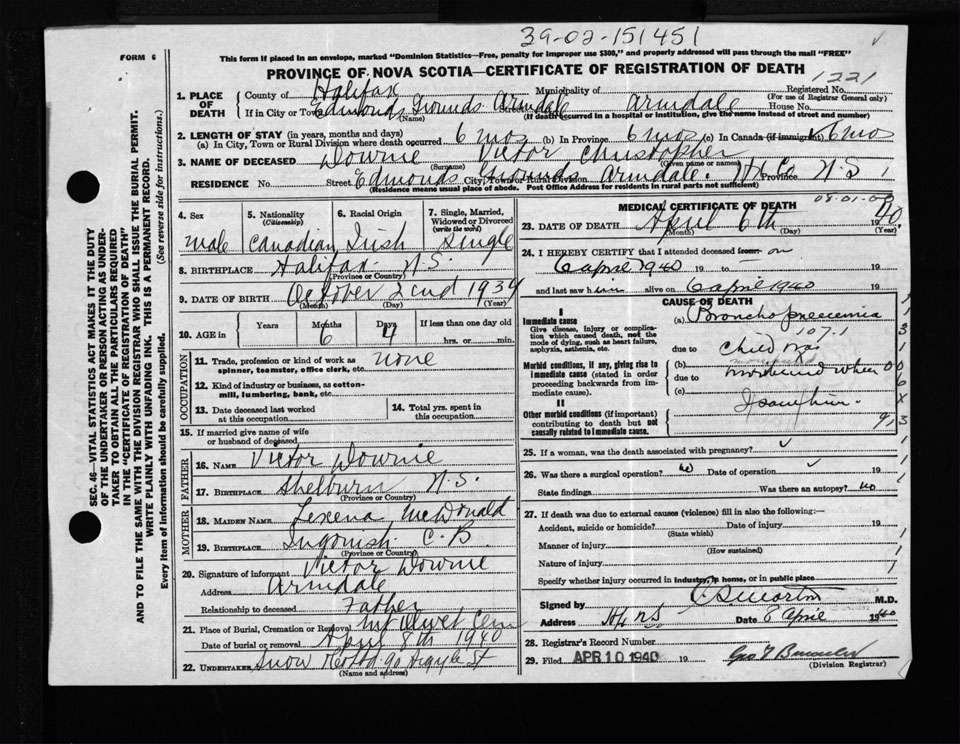 39-02-151451
FORM 6
This form if placed in an envelope, marked "Dominion Statistics—Free, penalty for improper use $300," and properly addressed will pass through the mail "FREE"
PROVINCE OF NOVA SCOTIA—CERTIFICATE OF REGISTRATION OF DEATH
1221
1. PLACE OF DEATH County of Halifax Municipality of Registered No.
(For use of Registrar General only)
If in City or Town Edmonds Grounds Armdale Street Armdale House No.
(Name) (If death occurred in a hospital or institution, give the name instead of street and number)
2. LENGTH OF STAY (in years, months and days)
(a) In City, Town or Rural Division where death occurred 6 mos (b) In Province 6 mos (c) In Canada (if immigrant) 6 mos
3. NAME OF DECEASED Downie Victor Christopher
(Surname) (Given name or names)
RESIDENCE No. Street Edmonds Grounds City, Town or Rural Division Armdale. Hfx Co Province N.S
(Residence means usual place of abode. Post Office Address for residents in rural parts not sufficient)
4. Sex 5. Nationality (Citizenship) 6. Racial Origin 7. Single, Married, Widowed or Divorced (write the word)
Male Canadian Irish Single
8. BIRTHPLACE Halifax N.S.
(Province or Country)
9. DATE OF BIRTH October 2nd 1939
(Month) (Day) (Year)
10. AGE in Years Months Days If less than one day
6 4 hrs. or min.
OCCUPATION
11. Trade, profession or kind of work as spinner, teamster, office clerk, etc. none
12. Kind of industry or business, as cotton-mill, lumbering, bank, etc.
13. Date deceased last worked at this occupation
14. Total yrs. spent in this occupation
15. If married give name of wife or husband of deceased
FATHER
16. NAME Victor Downie
17. BIRTHPLACE Shelburn N.S.
(Province or Country)
MOTHER
18. MAIDEN NAME Lexena McDonald
19. BIRTHPLACE Ingonish C.B
(Province or Country)
20. Signature of informant Victor Downie
Address Armdale
Relationship to deceased Father
21. Place of Burial, Cremation or Removal Mt Olivet Cem
Date of burial or removal April 8th 1940
22. UNDERTAKER Snow & Co Ltd 90 Argyle St
(Name and address)
MEDICAL CERTIFICATE OF DEATH
23. DATE OF DEATH April 6th 40
(Month) (Day) (Year)
24. I HEREBY CERTIFY that I attended deceased from on
6 April 1940 19 to 19
and last saw him alive on 6 April 1940 19
CAUSE OF DEATH
I
Immediate cause
Give disease, injury or complication which caused death, not the mode of dying, such as heart failure, asphyxia, asthenia, etc.
(a) Broncho pneumonia
107.1
due to Child was
Morbid conditions, if any, giving rise to immediate cause (stated in order proceeding backwards from immediate cause).
(b)
due to moribund when
(c) I saw him.
II
Other morbid conditions (if important) contributing to death but not causally related to immediate cause.
25. If a woman, was the death associated with pregnancy?
26. Was there a surgical operation? no Date of operation 19
State findings Was there an autopsy? no
27. If death was due to external causes (violence) fill in also the following:—
Accident, suicide or homicide? Date of injury 19
(State which)
Manner of injury
(How sustained)
Nature of injury
Specify whether injury occurred in industry, in home, or in public place
Signed by M.D.
Address Hfx NS Date 6 April 1940
28. Registrar's Record Number
29. Filed APR 10 1940 19
(Division Registrar)
SEC. 46—VITAL STATISTICS ACT MAKES IT THE DUTY
OF THE UNDERTAKER OR PERSON ACTING AS UNDER-
TAKER TO OBTAIN ALL THE PARTICULARS REQUIRED
IN THE "CERTIFICATE OF REGISTRATION OF DEATH"
AND TO FILE THE SAME WITH THE DIVISION REGISTRAR WHO SHALL ISSUE THE BURIAL PERMIT.
WRITE PLAINLY WITH UNFADING INK. THIS IS A PERMANENT RECORD.
Every item of information should be carefully supplied. (See reverse side for instructions.)